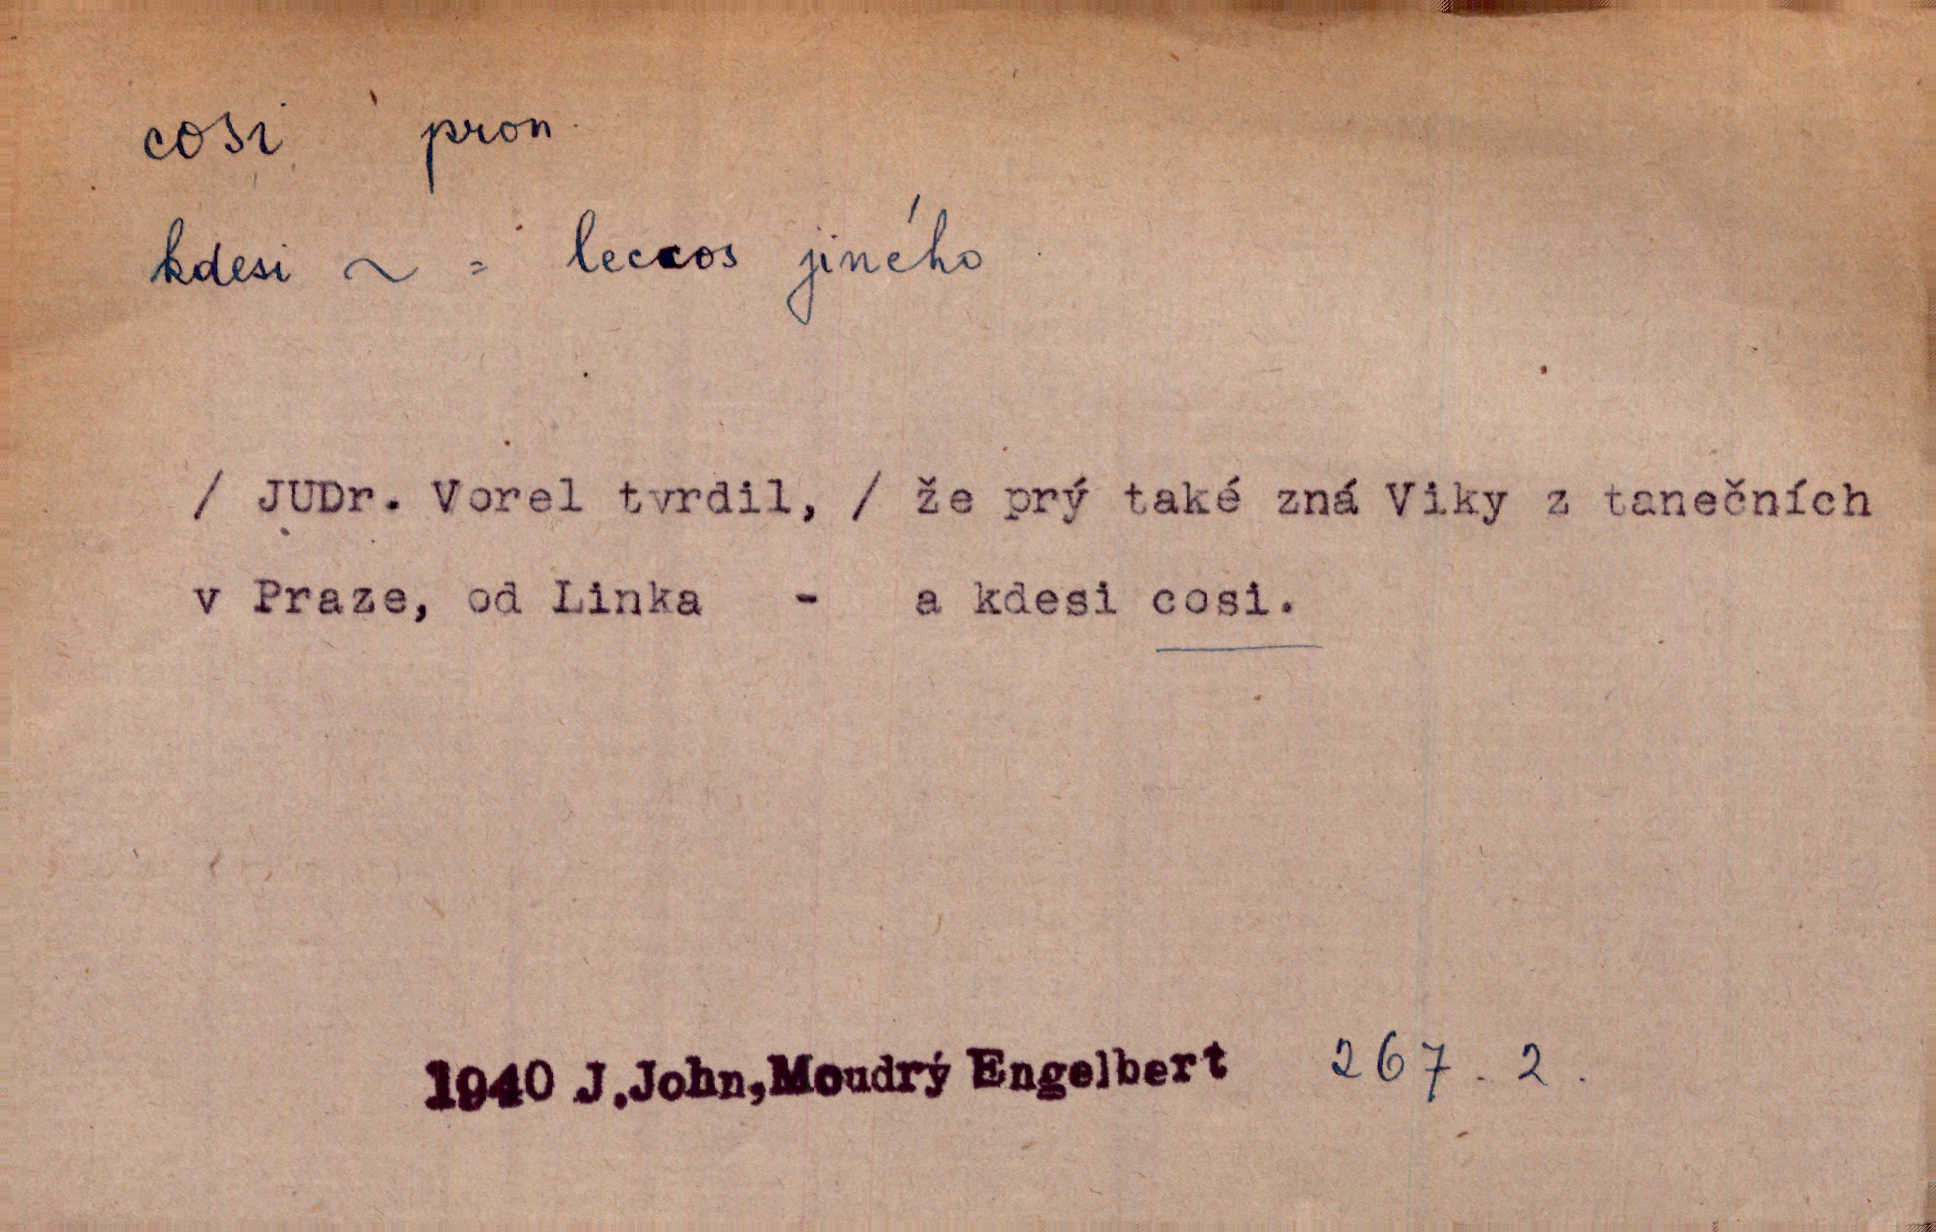 cosi pron.
kdesi ~ = leccos jiného
/ JUDr. Vorel tvrdil, / že prý také zná Viky z tanečních
v Praze, od Linka - a kdesi cosi.
1940 J.John,Moudrý Engelbert 267. 2.